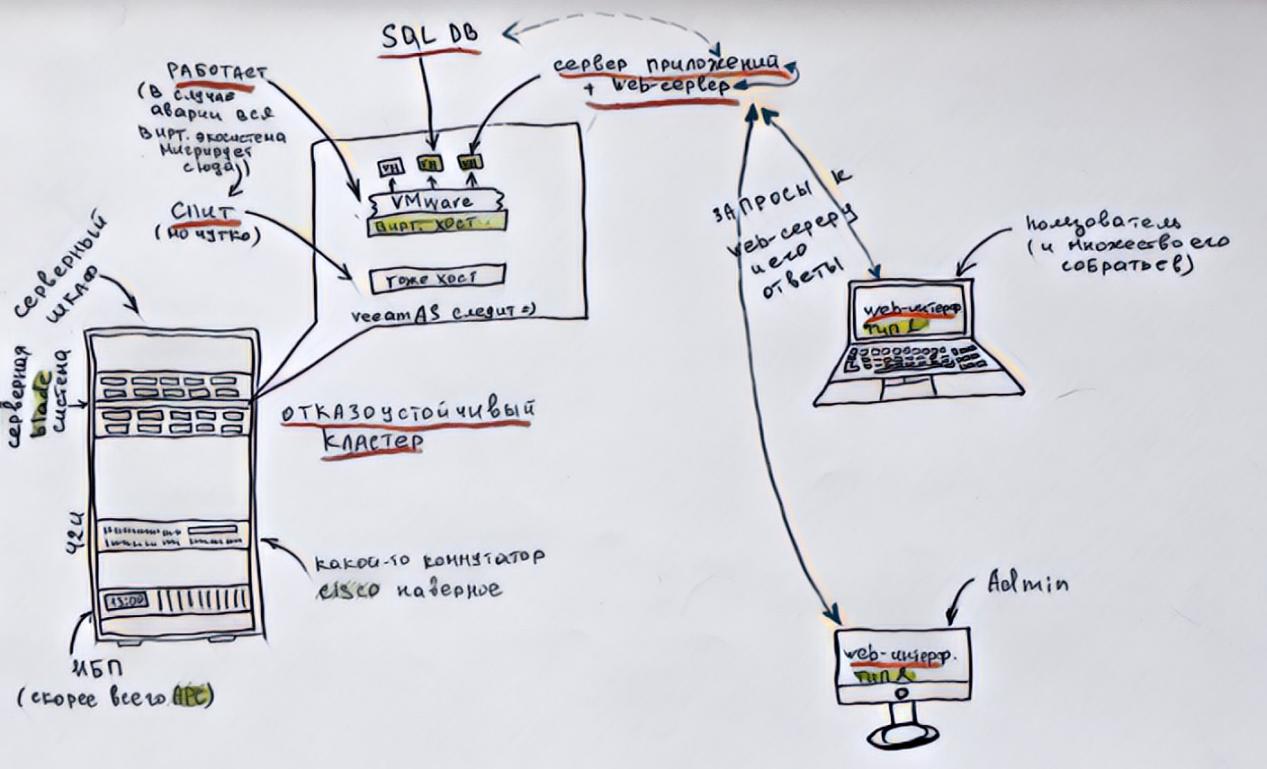 SQL DB
сервер приложений
+ web-сервер
РАБОТАЕТ
(В случае
аварии вся
вирт. экосистема
мигрирует
сюда))
СПИТ
(но чутко)
VM
VM
VM
VMware
вирт. хост
тоже хост
veeam AS следит =)
серверный
шкаф
серверная
blade
система
42U
ОТКАЗОУСТОЙЧИВЫЙ
КЛАСТЕР
какой-то коммутатор
cisco наверное
ИБП
(скорее всего APC)
ЗАПРОСЫ К
web-сереру
и его
ответы
пользователь
(и множество его
собратьев)
web-интерф.
тип
Admin
web-интерф.
тип